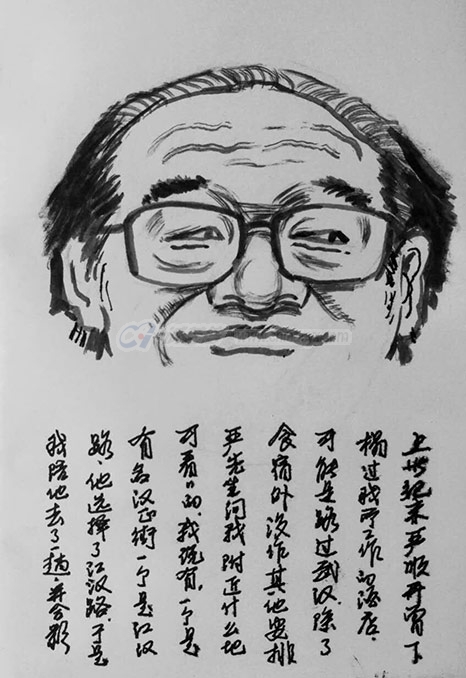 上世纪末严顺开曾下
榻过我所工作的酒店.
可能是路过武汉.除了
食宿外没作其他安排
严先生问我附近什么地
可看的.我说有.一个是
有名汉正街一个是江汉
路.他选择了江汉路.于是
我陪他去了一趟并合影